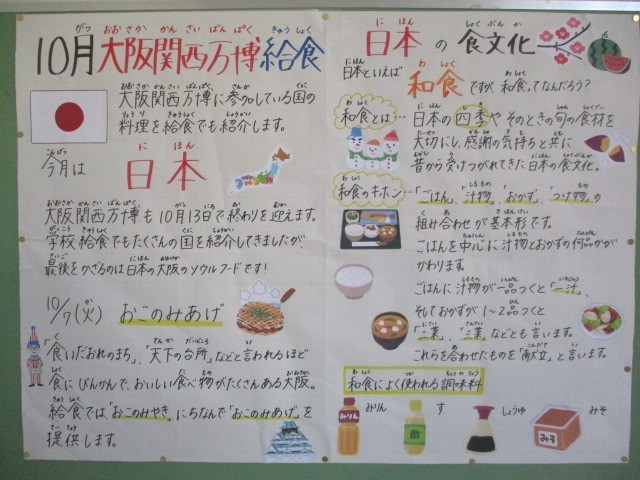 10月 大阪関西万博給食
大阪関西万博に参加している国の
料理を給食でも紹介します。
今月は 日本
大阪関西万博も10月13日で終わりを迎えます。
学校給食でもたくさんの国を紹介してきましたが
最後をかざるのは日本の大阪のソウルフードです!
10/7(火) おこのみあげ
「食いだおれのまち」、「天下の台所」などと言われるほど
食にびんかんで、おいしい食べ物がたくさんある大阪。
給食では「おこのみやき」にちなんで「おこのみあげ」を
提供します。
日本の食文化
日本といえば 和食 ですが、和食ってなんだろう?
和食とは… 日本の四季やそのときの旬の食材を
大切にし、感謝の気持ちと共に
昔から受けつがれてきた日本の食文化。
和食のキホン… 「ごはん」、「汁物」、「おかず」、「つけ物」の
組み合わせが基本形です。
ごはんを中心に汁物とおかずの何品かが
かわります。
ごはんに汁物が一品つくと「一汁」、
そしておかずが1〜2品つくと
「二菜」、「三菜」などとも言います。
これらを合わせたものを「献立」と言います。
和食によく使われる調味料
みりん みりん
酢 す
しょうゆ
みそ みそ